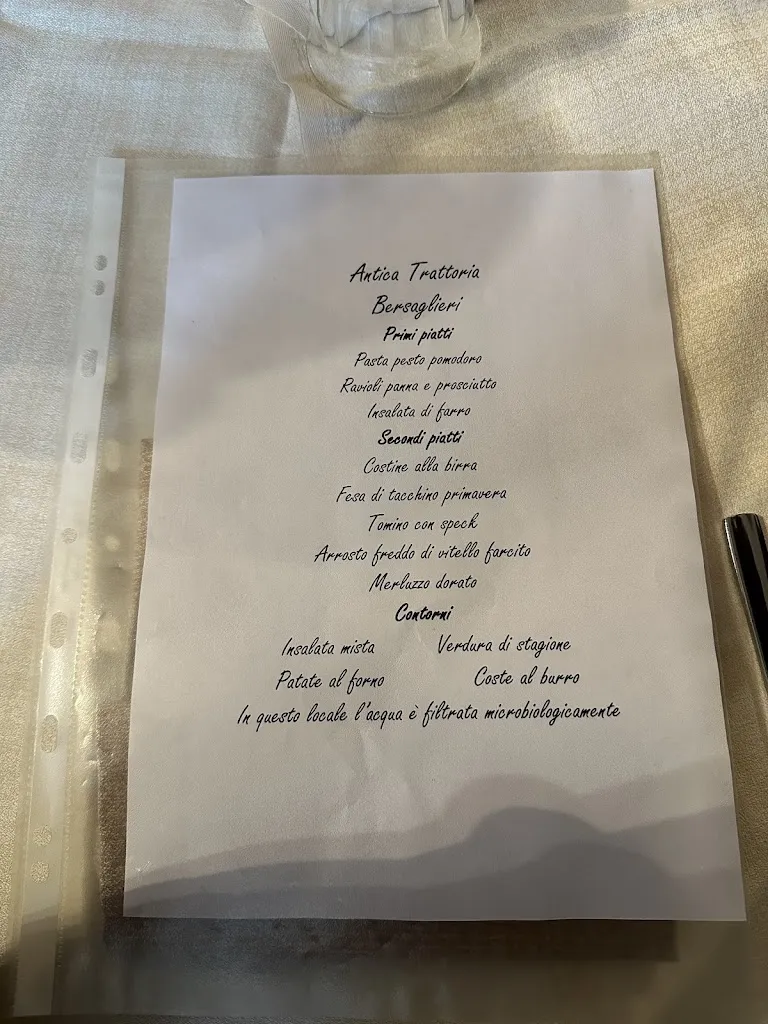 Antica Trattoria
Bersaglieri
Primi piatti
Pasta pesto pomodoro
Ravioli panna e prosciutto
Insalata di farro
Secondi piatti
Costine alla birra
Fesa di tacchino primavera
Tomino con speck
Arrosto freddo di vitello farcito
Merluzzo dorato
Contorni
Insalata mista Verdura di stagione
Patate al forno Coste al burro
In questo locale l'acqua è filtrata microbiologicamente